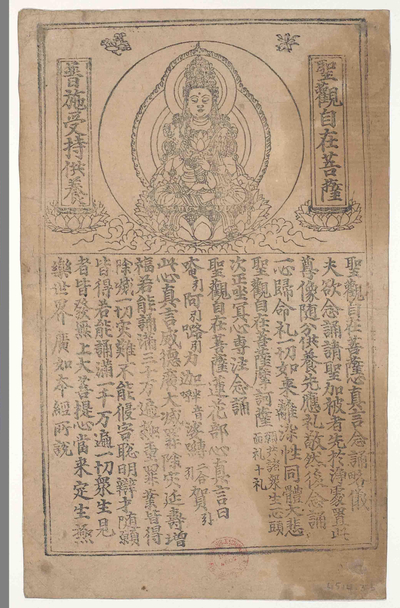 聖觀自在菩薩
普施受持供養
聖觀自在菩薩心真言念誦略儀
夫欲念誦請聖加被者先於淨處置此
尊像隨分供養先應礼敬然後念誦
一心歸命礼一切如來離染性同體大悲
聖觀自在菩薩摩訶薩 願共諸衆生一心頭面礼十礼
次正坐冥心專注念誦
聖觀自在菩薩蓮花部心真言曰
唵引阿引嚕引力迦半音娑嚩二合賀引
此心真言威德廣大滅罪除災延壽增
福若能誦滿三十万遍極重罪業皆得
除滅一切災難不能侵害聡明辯才隨願
皆得若能誦滿一千万遍一切衆生見
者皆發無上大菩提心當來定生極
樂世界廣如本經所說